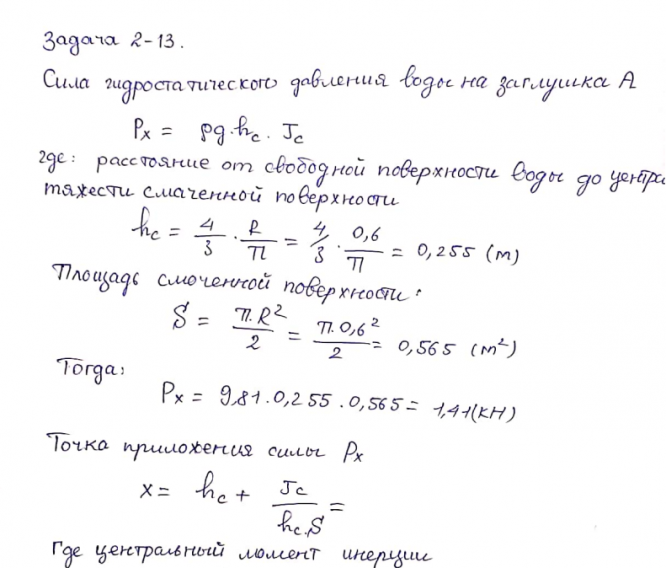 Задача 2-13.
Сила гидростатического давления воды на заглушка А
Px = ρg·hc·Jc
где: расстояние от свободной поверхности воды до центра
тяжести смаченной поверхности
hc = 4/3 · R/П = 4/3 · 0,6/П = 0,255 (м)
Площадь смоченной поверхности:
S = П.R²/2 = П.0,6²/2 = 0,565 (м²)
Тогда:
Px = 9,81·0,255·0,565 = 1,41(КН)
Точка приложения силы Px
x = hc + Jc/hc.S =
Где центральный момент инерции